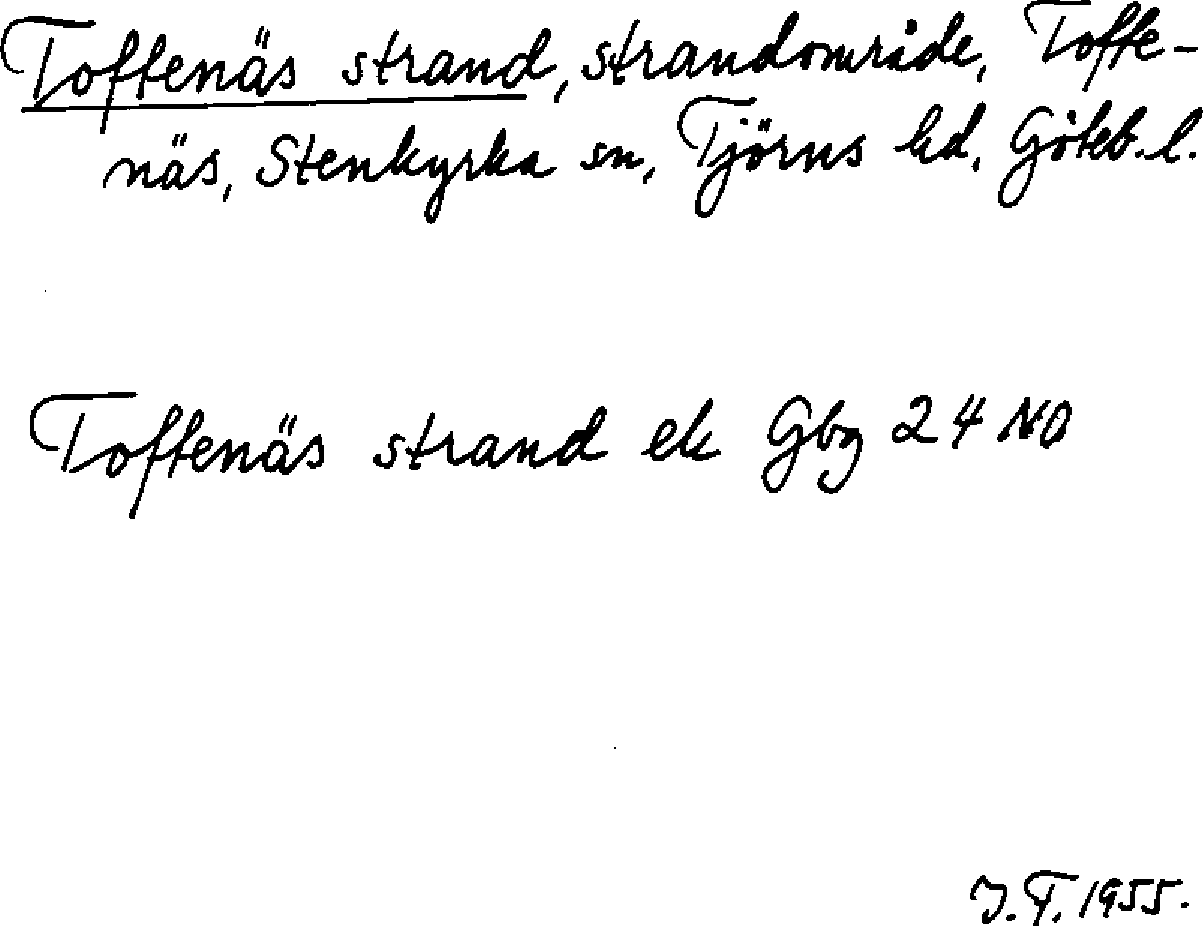 Toftenäs strand, strandområde, Tofte-
näs, Stenkyrka sn, Tjörns hd, Göteb. l.
Toftenäs strand ek Gbg 24 NO
J.T. 1955.